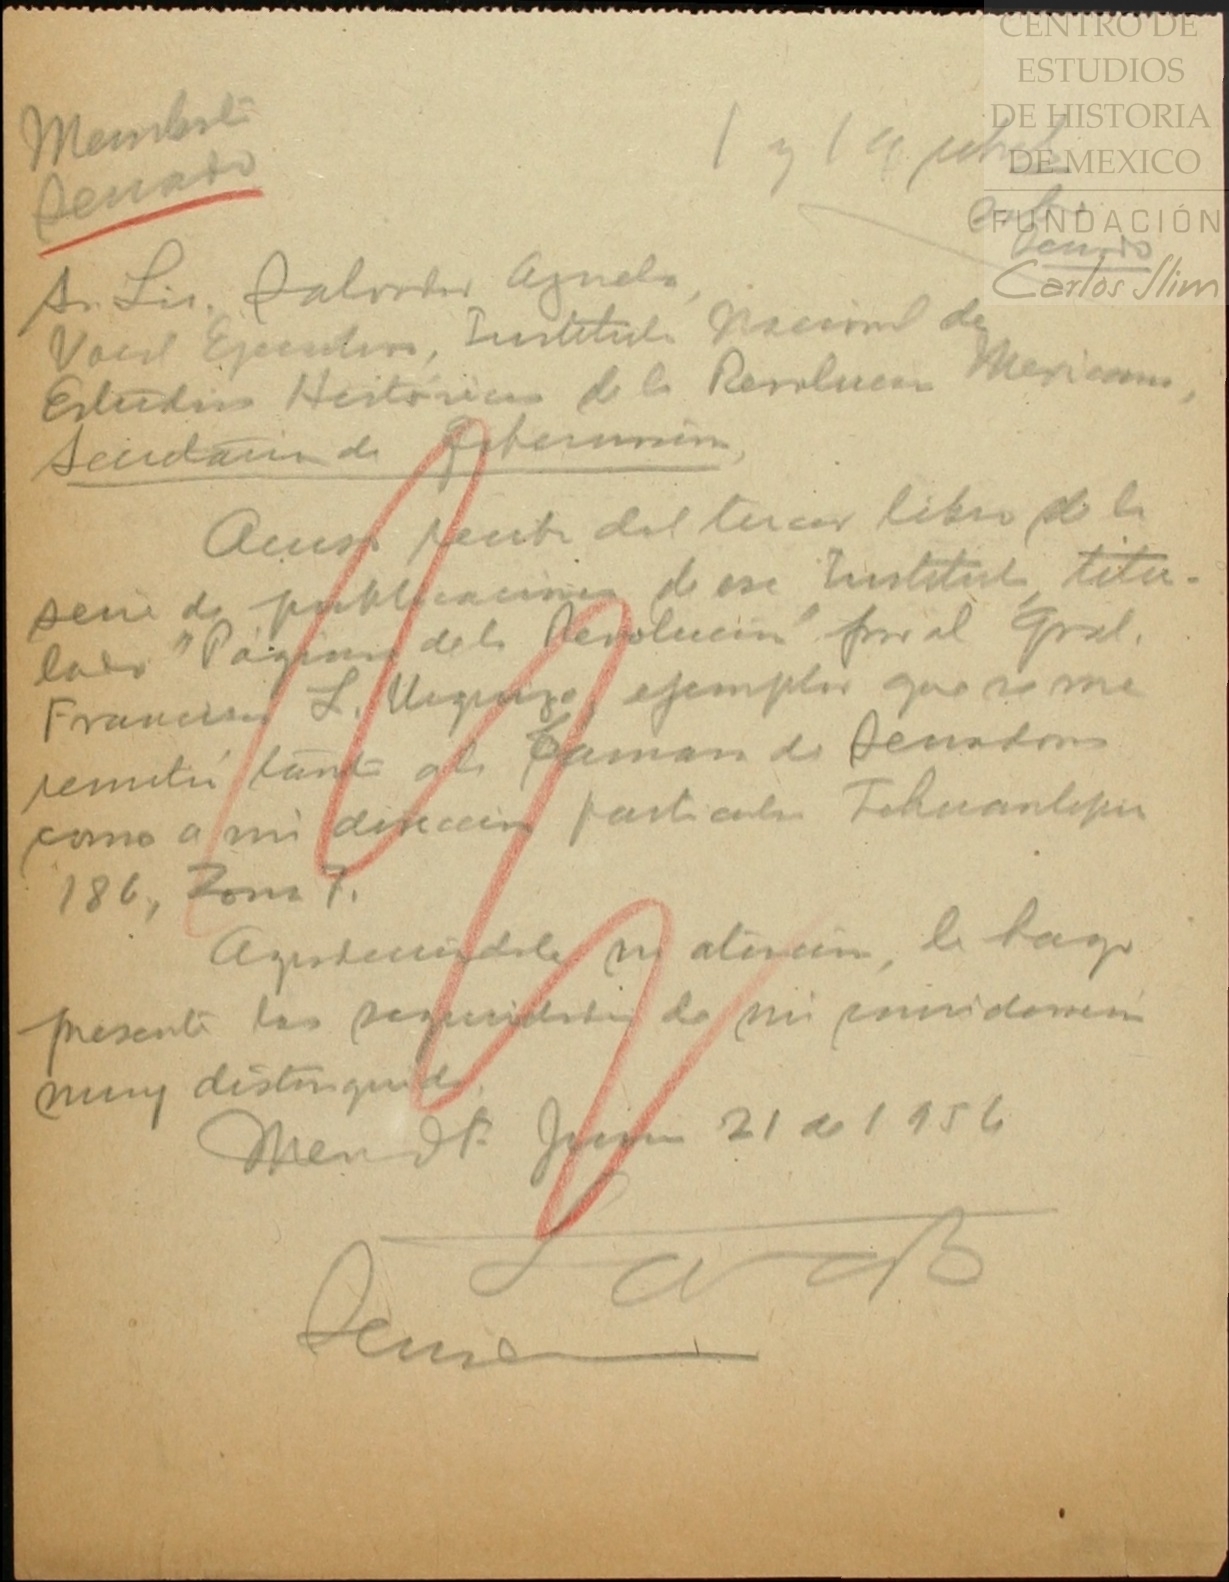 CENTRO DE
ESTUDIOS
DE HISTORIA
DE MEXICO
FUNDACIÓN
Carlos Slim
Membrete
Senado
1 y 1
Senado
Sr. Lic. Salvador Azuela,
Vocal Ejecutivo, Instituto Nacional de
Estudios Históricos de la Revolucion Mexicana,
Secretaría de Gobernación,
Acuso recibo del tercer libro de la
serie de publicaciones de ese Instituto, titu-
lado "Páginas de la Revolución" por el Gral.
Francisco L. Urquizo, ejemplar que se me
remitió tanto a la Camara de Senadores
como a mi dirección particular Tehuantepec
186, Zona 7.
Agradeciéndole su atención, le hago
presente las seguridades de mi consideración
muy distinguida.
Mex D.F. Junio 21 de 1956